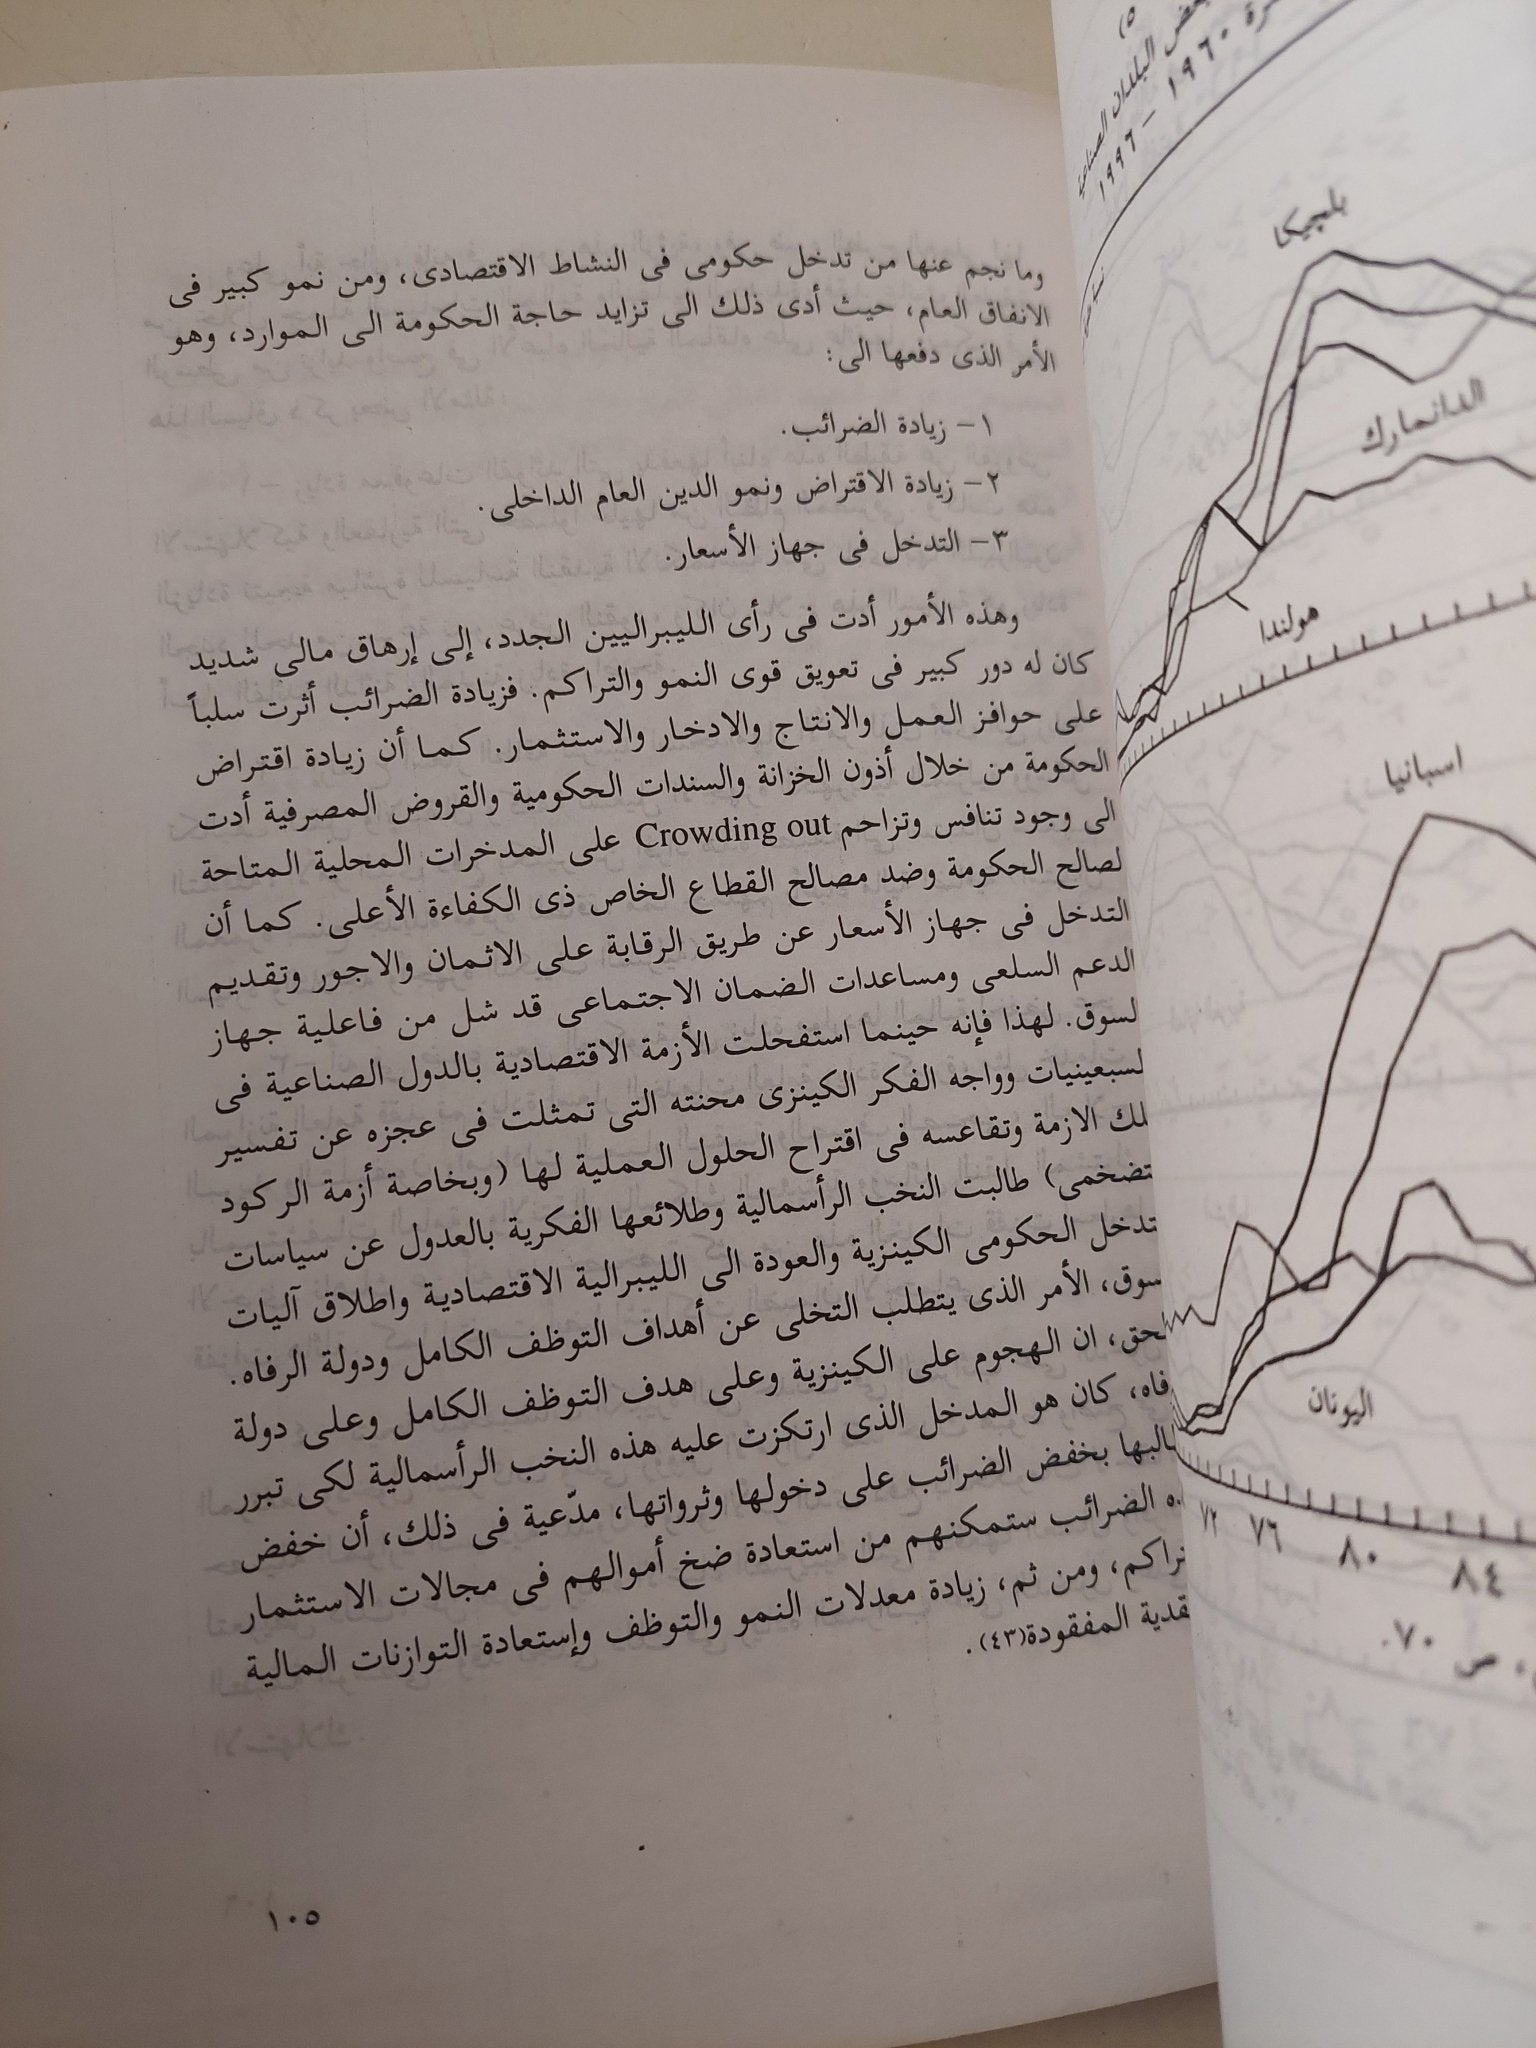 ٥)
بعض البلدان الصناعية
١٩٦٠ – ١٩٩٦
بلجيكا
الدانمارك
هولندا
اسبانيا
اليونان
٧٢ ٧٦ ٨٠ ٨٤
، ص ٧٠.
وما نجم عنها من تدخل حكومى فى النشاط الاقتصادى، ومن نمو كبير فى
الانفاق العام، حيث أدى ذلك الى تزايد حاجة الحكومة الى الموارد، وهو
الأمر الذى دفعها الى:
١– زيادة الضرائب.
٢– زيادة الاقتراض ونمو الدين العام الداخلى.
٣– التدخل فى جهاز الأسعار.
وهذه الأمور أدت فى رأى الليبراليين الجدد، إلى إرهاق مالى شديد
كان له دور كبير فى تعويق قوى النمو والتراكم. فزيادة الضرائب أثرت سلباً
على حوافز العمل والانتاج والادخار والاستثمار. كما أن زيادة اقتراض
الحكومة من خلال أذون الخزانة والسندات الحكومية والقروض المصرفية أدت
الى وجود تنافس وتزاحم Crowding out على المدخرات المحلية المتاحة
لصالح الحكومة وضد مصالح القطاع الخاص ذى الكفاءة الأعلى. كما أن
التدخل فى جهاز الأسعار عن طريق الرقابة على الاثمان والاجور وتقديم
الدعم السلعى ومساعدات الضمان الاجتماعى قد شل من فاعلية جهاز
لسوق. لهذا فإنه حينما استفحلت الأزمة الاقتصادية بالدول الصناعية فى
لسبعينيات وواجه الفكر الكينزى محنته التى تمثلت فى عجزه عن تفسير
لك الازمة وتقاعسه فى اقتراح الحلول العملية لها (وبخاصة أزمة الركود
تضخمى) طالبت النخب الرأسمالية وطلائعها الفكرية بالعدول عن سياسات
تدخل الحكومى الكينزية والعودة الى الليبرالية الاقتصادية واطلاق آليات
سوق، الأمر الذى يتطلب التخلى عن أهداف التوظف الكامل ودولة الرفاه.
لحق، ان الهجوم على الكينزية وعلى هدف التوظف الكامل وعلى دولة
فاه، كان هو المدخل الذى ارتكزت عليه هذه النخب الرأسمالية لكى تبرر
البها بخفض الضرائب على دخولها وثرواتها، مدّعية فى ذلك، أن خفض
ه الضرائب ستمكنهم من استعادة ضخ أموالهم فى مجالات الاستثمار
تراكم، ومن ثم، زيادة معدلات النمو والتوظف وإستعادة التوازنات المالية
نقدية المفقودة(٤٣).
١٠٥